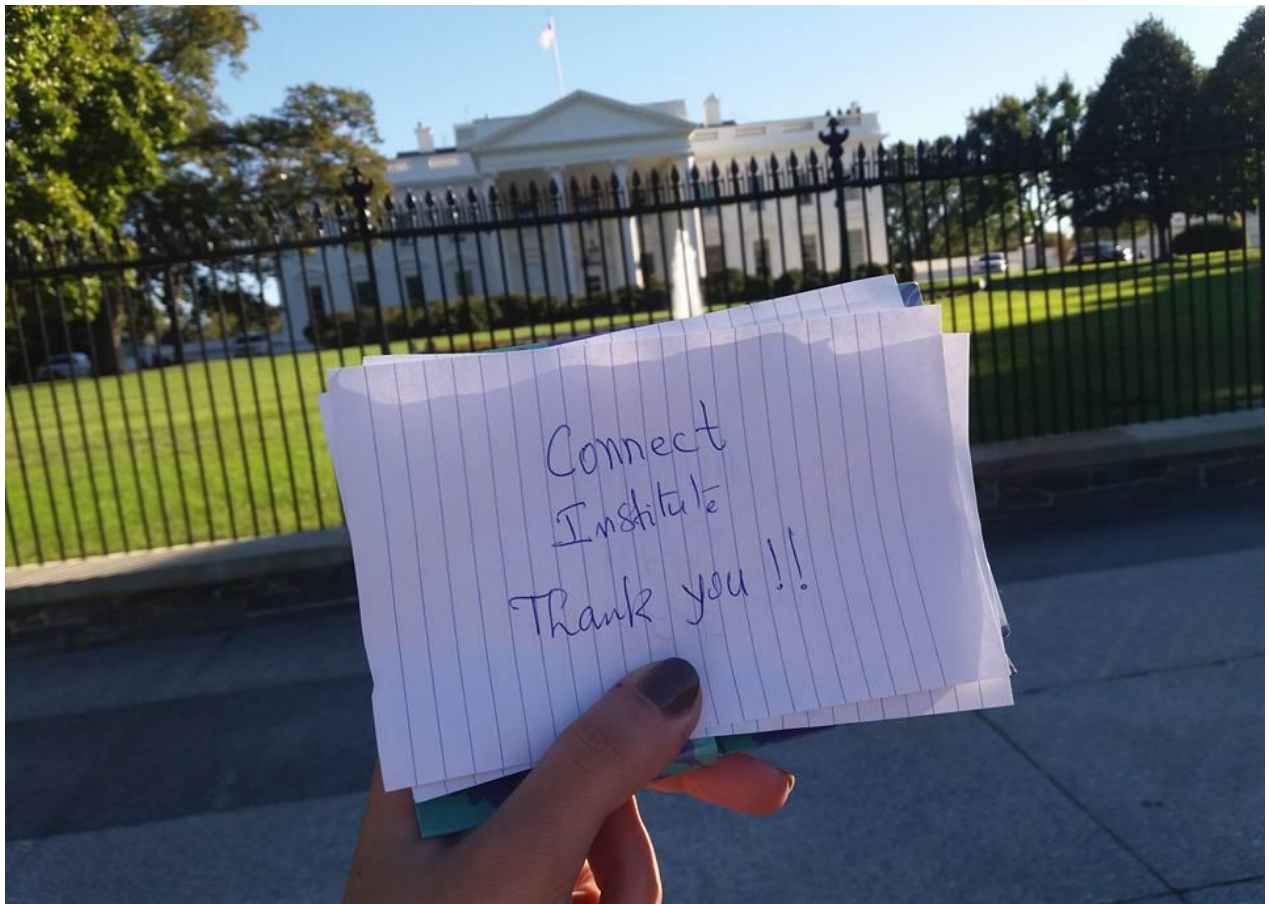 Connect
Institute
Thank you !!